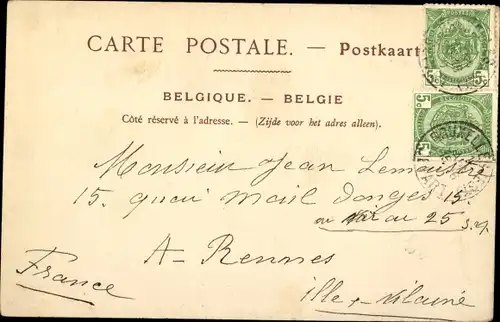 CARTE POSTALE. — Postkaart
BELGIQUE. — BELGIE
Côté réservé à l'adresse. — (Zijde voor het adres alleen).
5c
5c 5c
Monsieur Jean
15. quai Mail Donges 15.
ou au 25
A - Rennes
France
Ille & Vilaine